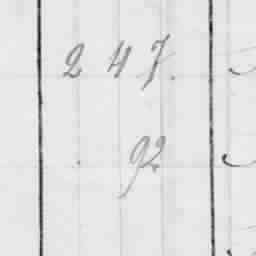 2 4 7.
92